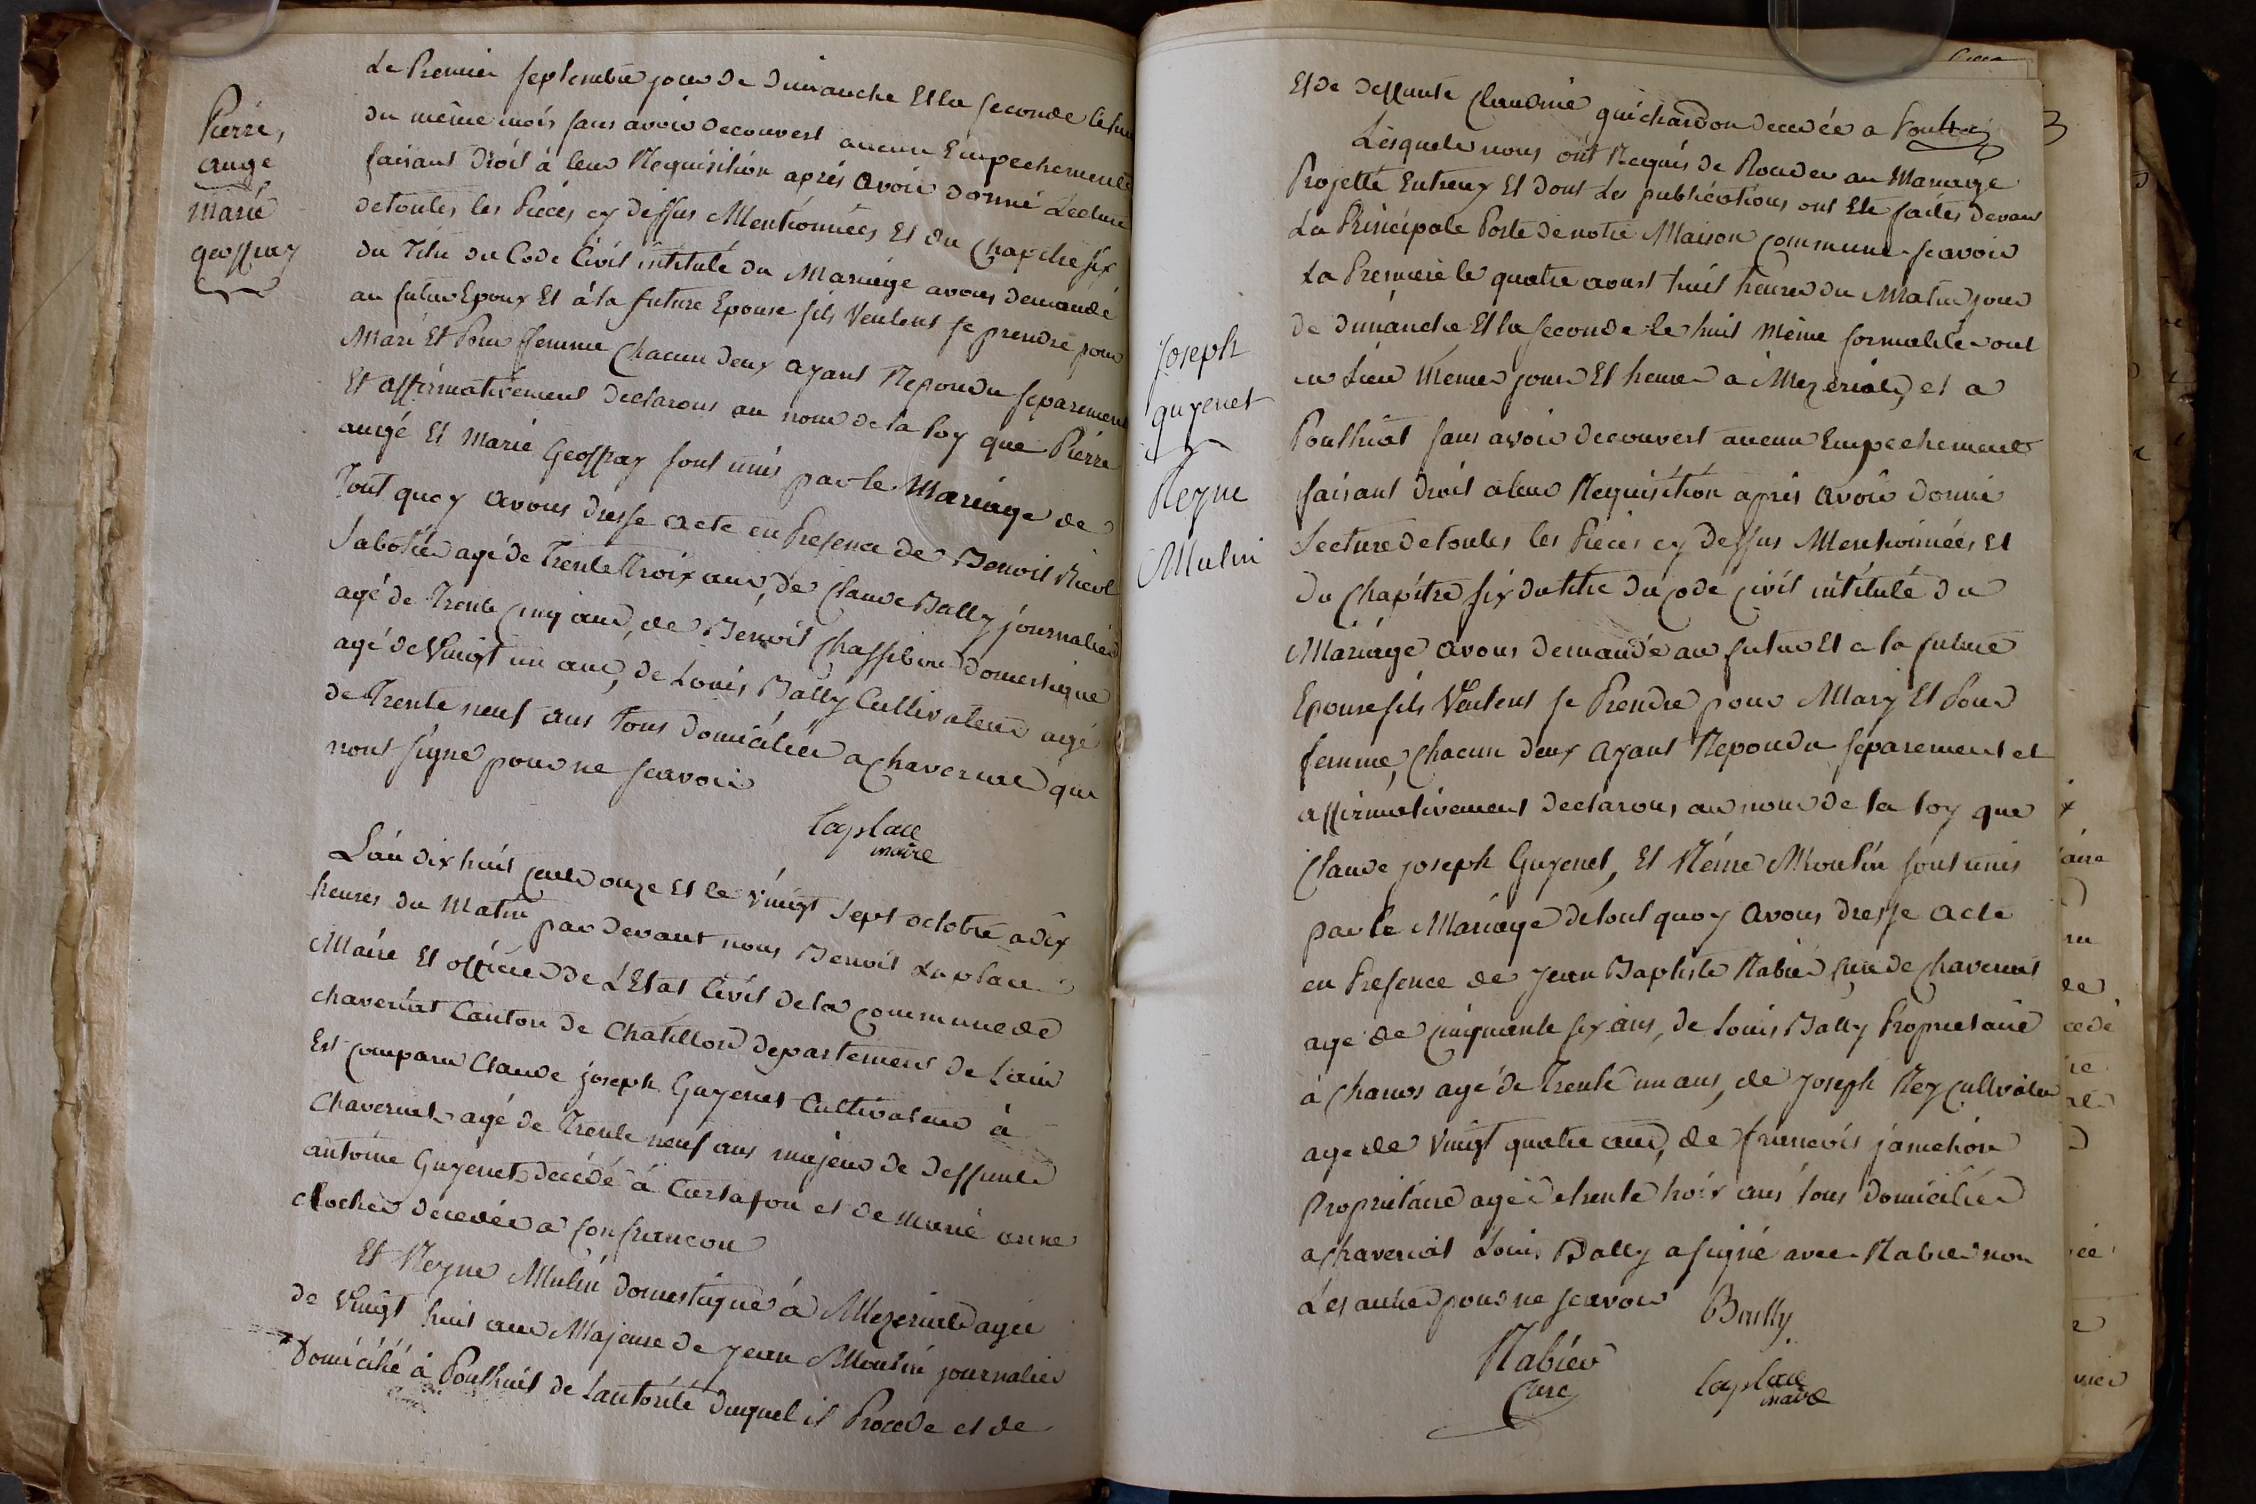 Pierre,
augé
marié
geoffray
Le Premier septembre jour de dimanche Et la seconde le
du même mois sans avoir decouvert aucun Empechement
faisant droit à leur Requisition aprés avoir donné Lecture
detoutes les Piéces cy dessus Mentionnées Et du Chapitre six
du Titre du Code Civil intitulé du Mariage avons demandé
au futur Epoux Et à la future Epouse sils Veulent se prendre pour
Mari Et Pour ffemme Chacun deux ayant Repondu separement
Et affirmativement declarons au nom de la loy que Piérre
augé Et Marié Geoffray sont unis par le Mariage de
Tout quoy avons dresse acte en Presence de Benoit
Sabotier agé de Trente Troix ans, de Claude Bally journalier
agé de Trente Cinq ans, de Benoit domestique
agé de Vingt un ans, de Louis Bally Cultivateur agé
de Trente neuf ans Tous domiciliés a chaveriat qui
nont signé pour ne scavoir
Laplace
maire
L'an dix huit cent onze Et le Vingt sept octobre a dix
heures du Matin par devant nous Benoit Laplace
Maire Et officier de L'Etat Civil de la Commune de
chaveriat Canton de Chatillon departement de Lain
Est comparu Claude joseph Guyenet Cultivateur à
Chaveriat agé de Trente neuf ans majeur de deffunt
antoine Guyenet decédé à Curtafon et de marie anne
clocher decedée a Confrancon
Et Reyne Mulin domestique à Mezeriat agée
de Vingt huit ans Majeure de jean Moulin journalier
Domicilié à Pouthiat de Lautorité duquel il Procede et de
Joseph
guyenet
Et
Reyne
Mulin
Et de deffunte Claudine guichardon decedée a
Lesquels nous ont Requis de Proceder au Mariage
Projetté Entreux Et dont Les publications ont Eté faites devant
La Principale Porte de notre Maison Commune scavoir
La Premiere le quatre aoust huit heures du Matin jour
de dimanche Et la seconde le huit Même formalité ont
eu Lieu Même jour Et heure à Mezeriat, et a
Pouthiat sans avoir decouvert aucun Empechement
faisant droit a leur Requisition aprés avoir donné
Lecture detoutes les Piéces cy dessus Mentionnées Et
Du Chapitre six du titre du Code Civil intitulé du
Mariage avons demandé au futur Et a la future
Epouse sils Veulent se Prendre pour Mary Et Pour
femme, Chacun deux ayant Repondu separement et
affirmativement declarons au nom de la loy que
Claude joseph Guyenet, Et Réine Moulin sont unis
par le Mariage detout quoy avons dresse acte
en Presence de Jean Baptiste Rabier Curé de Chaveriat
agé de Cinquante six ans, de Louis Bally Propriétaire
à Chanos agé de Trente un ans, de Joseph Rey Cultivateur
age de Vingt quatre ans, de francois jamchon
Propriétaire agé de trente troix ans tous domiciliés
a chaveriat Louis Bally a signé avec Rabier non
Les autres pour ne scavoir
Bailly
Rabier
Curé
Laplace
maire